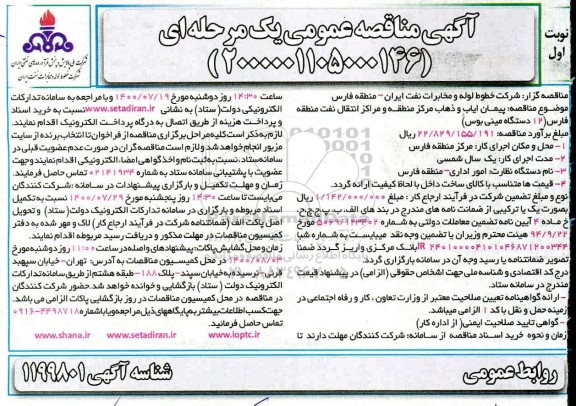 نوبت اول
آگهی مناقصه عمومی یک مرحله ای
(۲۰۰۰۰۰۱۱۰۵۰۰۰۱۴۶)
شرکت ملی پالایش و پخش فرآورده های نفتی ایران
شرکت خطوط لوله و مخابرات نفت ایران
مناقصه گزار: شرکت خطوط لوله و مخابرات نفت ایران - منطقه فارس
موضوع مناقصه: پیمان ایاب و ذهاب مرکز منطقه و مراکز انتقال نفت منطقه
فارس (۱۲ دستگاه مینی بوس)
مبلغ برآورد مناقصه: ۲۲/۸۲۹/۱۵۵/۱۹۱ ریال
۱- محل و مکان اجرای کار: مرکز منطقه فارس
۲- مدت اجرای کار: یک سال شمسی
۳- نام دستگاه نظارت: امور اداری - منطقه فارس
۴- قیمت ها متناسب با کالای ساخت داخل با لحاظ کیفیت ارائه گردد.
نوع و مبلغ تضمین شرکت در فرآیند ارجاع کار: مبلغ ۱/۱۴۲/۰۰۰/۰۰۰ ریال
بصورت یک یا ترکیبی از ضمانت نامه های مندرج در بند های الف، ب، پ، ج، ح
ماده ۴ آیین نامه تضمین معاملات دولتی به شماره ۱۲۳۴۰۲/ت۵۰۶۵۹ مورخ
۹۴/۹/۲۲ هیئت محترم وزیران یا تضمین وجه نقد میبایست به شماره شبا
IR ۲۴۰۱۰۰۰۰۴۱۰۱۰۴۶۸۷۱۲۰۰۳۴۴ بانک مرکزی واریز گردد ضمنا
تصویر ضمانتنامه یا رسید وجه آن در سامانه بارگزاری گردد.
درج کد اقتصادی و شناسه ملی جهت اشخاص حقوقی (الزامی) در پیشنهاد قیمت
مندرج در سامانه ستاد.
- ارائه گواهینامه تعیین صلاحیت معتبر از وزارت تعاون، کار و رفاه اجتماعی در
زمینه حمل و نقل با کد ۱ الزامی میباشد.
- گواهی تایید صلاحیت ایمنی (از اداره کار)
زمان و نحوه خرید اسناد مناقصه از سامانه: شرکت کنندگان مهلت دارند تا
ساعت ۱۴:۳۰ روز دوشنبه مورخ ۱۴۰۰/۰۷/۱۹ و با مراجعه به سامانه تدارکات
الکترونیکی دولت (ستاد) به نشانی www.setadiran.ir نسبت به خرید اسناد
و پرداخت هزینه از طریق اتصال به درگاه پرداخت الکترونیک اقدام نمایند.
لازم به ذکر است کلیه مراحل برگزاری مناقصه از فراخوان تا انتخاب برنده از سایت
مزبور انجام خواهد شد و لازم است مناقصه گران در صورت عدم عضویت قبلی در
سامانه ستاد، نسبت به ثبت نام و اخذ گواهی امضاء الکترونیکی اقدام نمایند و جهت
عضویت با پشتیبانی سامانه ستاد به شماره ۰۲۱۴۱۹۳۴ تماس حاصل فرمایند.
زمان و مهلت تکمیل و بارگزاری پیشنهادات در سامانه: شرکت کنندگان
می بایست تا ساعت ۱۴:۳۰ روز پنجشنبه مورخ ۱۴۰۰/۰۷/۲۹ نسبت به تکمیل
اسناد مربوطه و بارگزاری در سامانه تدارکات الکترونیک دولت (ستاد) و تحویل
اصل پاکت الف (ضمانتنامه شرکت در فرآیند ارجاع کار) لاک و مهر شده به دفتر
کمیسیون مناقصات در مهلت مذکور و دریافت رسید مربوطه اقدام نمایند.
زمان و محل گشایش پاکات: پیشنهادهای واصله در ساعت ۱۱:۰۰ روز دوشنبه مورخ
۱۴۰۰/۰۸/۰۳ در محل کمیسیون مناقصات به آدرس: تهران - خیابان سپهبد
قرنی - نرسیده به خیابان سپند - پلاک ۱۸۸ - طبقه هشتم از طریق سامانه تدارکات
الکترونیک دولت (ستاد) بازگشایی و خوانده خواهد شد. حضور شرکت کنندگان
در مناقصه در محل کمیسیون مناقصات در روز بازگشایی پاکات الزامی می باشد.
جهت کسب اطلاعات بیشتر به پایگاههای ذیل مراجعه و یا با شماره ۰۹۱۶-۴۴۹۸۷۱۸
تماس حاصل فرمائید.
www.shana.ir www.setadiran.ir www.ioptc.ir
روابط عمومی
شناسه آگهی ۱۱۹۹۸۰۱